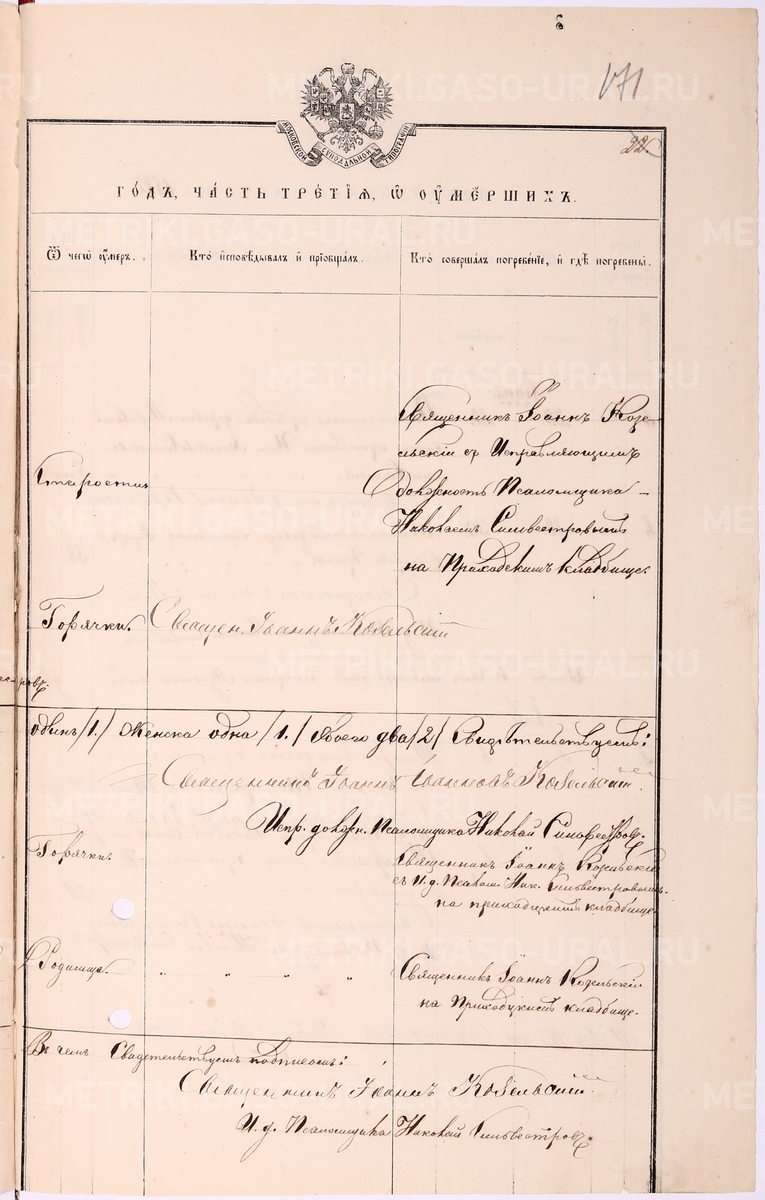 171
22.
МОСКОВСКОЙ СѴНОДАЛЬНОЙ ТИПОГРАФІИ
ГОДЪ, ЧАСТЬ ТРЕТІѦ, Ѡ ОУМЕРШИХЪ.
Ѿ чегѡ оумеръ.
Кто исповѣдывалъ и пріобщалъ.
Кто совершалъ погребеніе, и гдѣ погребены.
Священникъ Іоаннъ Козе-
льскій съ Исправляющимъ
Старости
должность Псаломщика
Николаемъ Сильвестровымъ
на Приходскомъ кладбище.
Горячки. Священ. Іоаннъ Козельскій
одинъ /1./ Женска одна /1./ Обоего два /2/ Свидѣтельствуемъ:
Священникъ Іоаннъ Іоанновъ Козельскій.
Испр. должн. Псаломщика Николай Сильвестровъ.
Горячки.
Священникъ Іоаннъ Козельскій
съ И. д. Псалом. Ник. Сильвестровымъ
на приходскомъ кладбище.
Родимца. " " " "
Священникъ Іоаннъ Козельскій
на Приходскомъ кладбище.
Въ чемъ Свидетельствуемъ подписомъ:
Священникъ Іоаннъ Козельскій
И. д. Псаломщика Николай Сильвестровъ.
METRIKI.GASO-URAL.RU